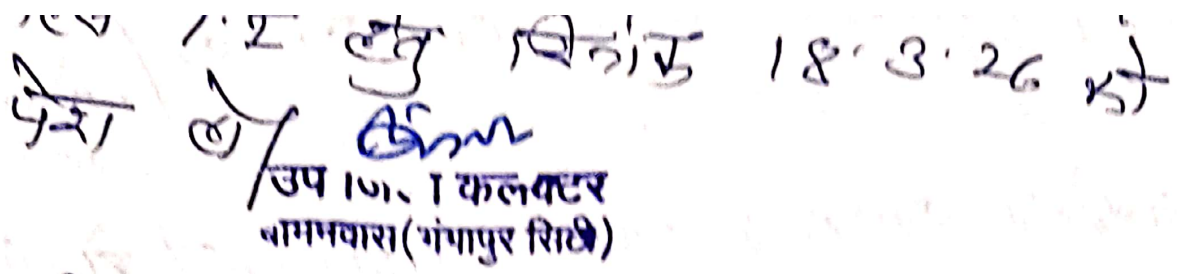 हेतु दिनांक 18.3.26 को
पेश हो/
उप जिला कलक्टर
बामनवास (गंगापुर सिटी)